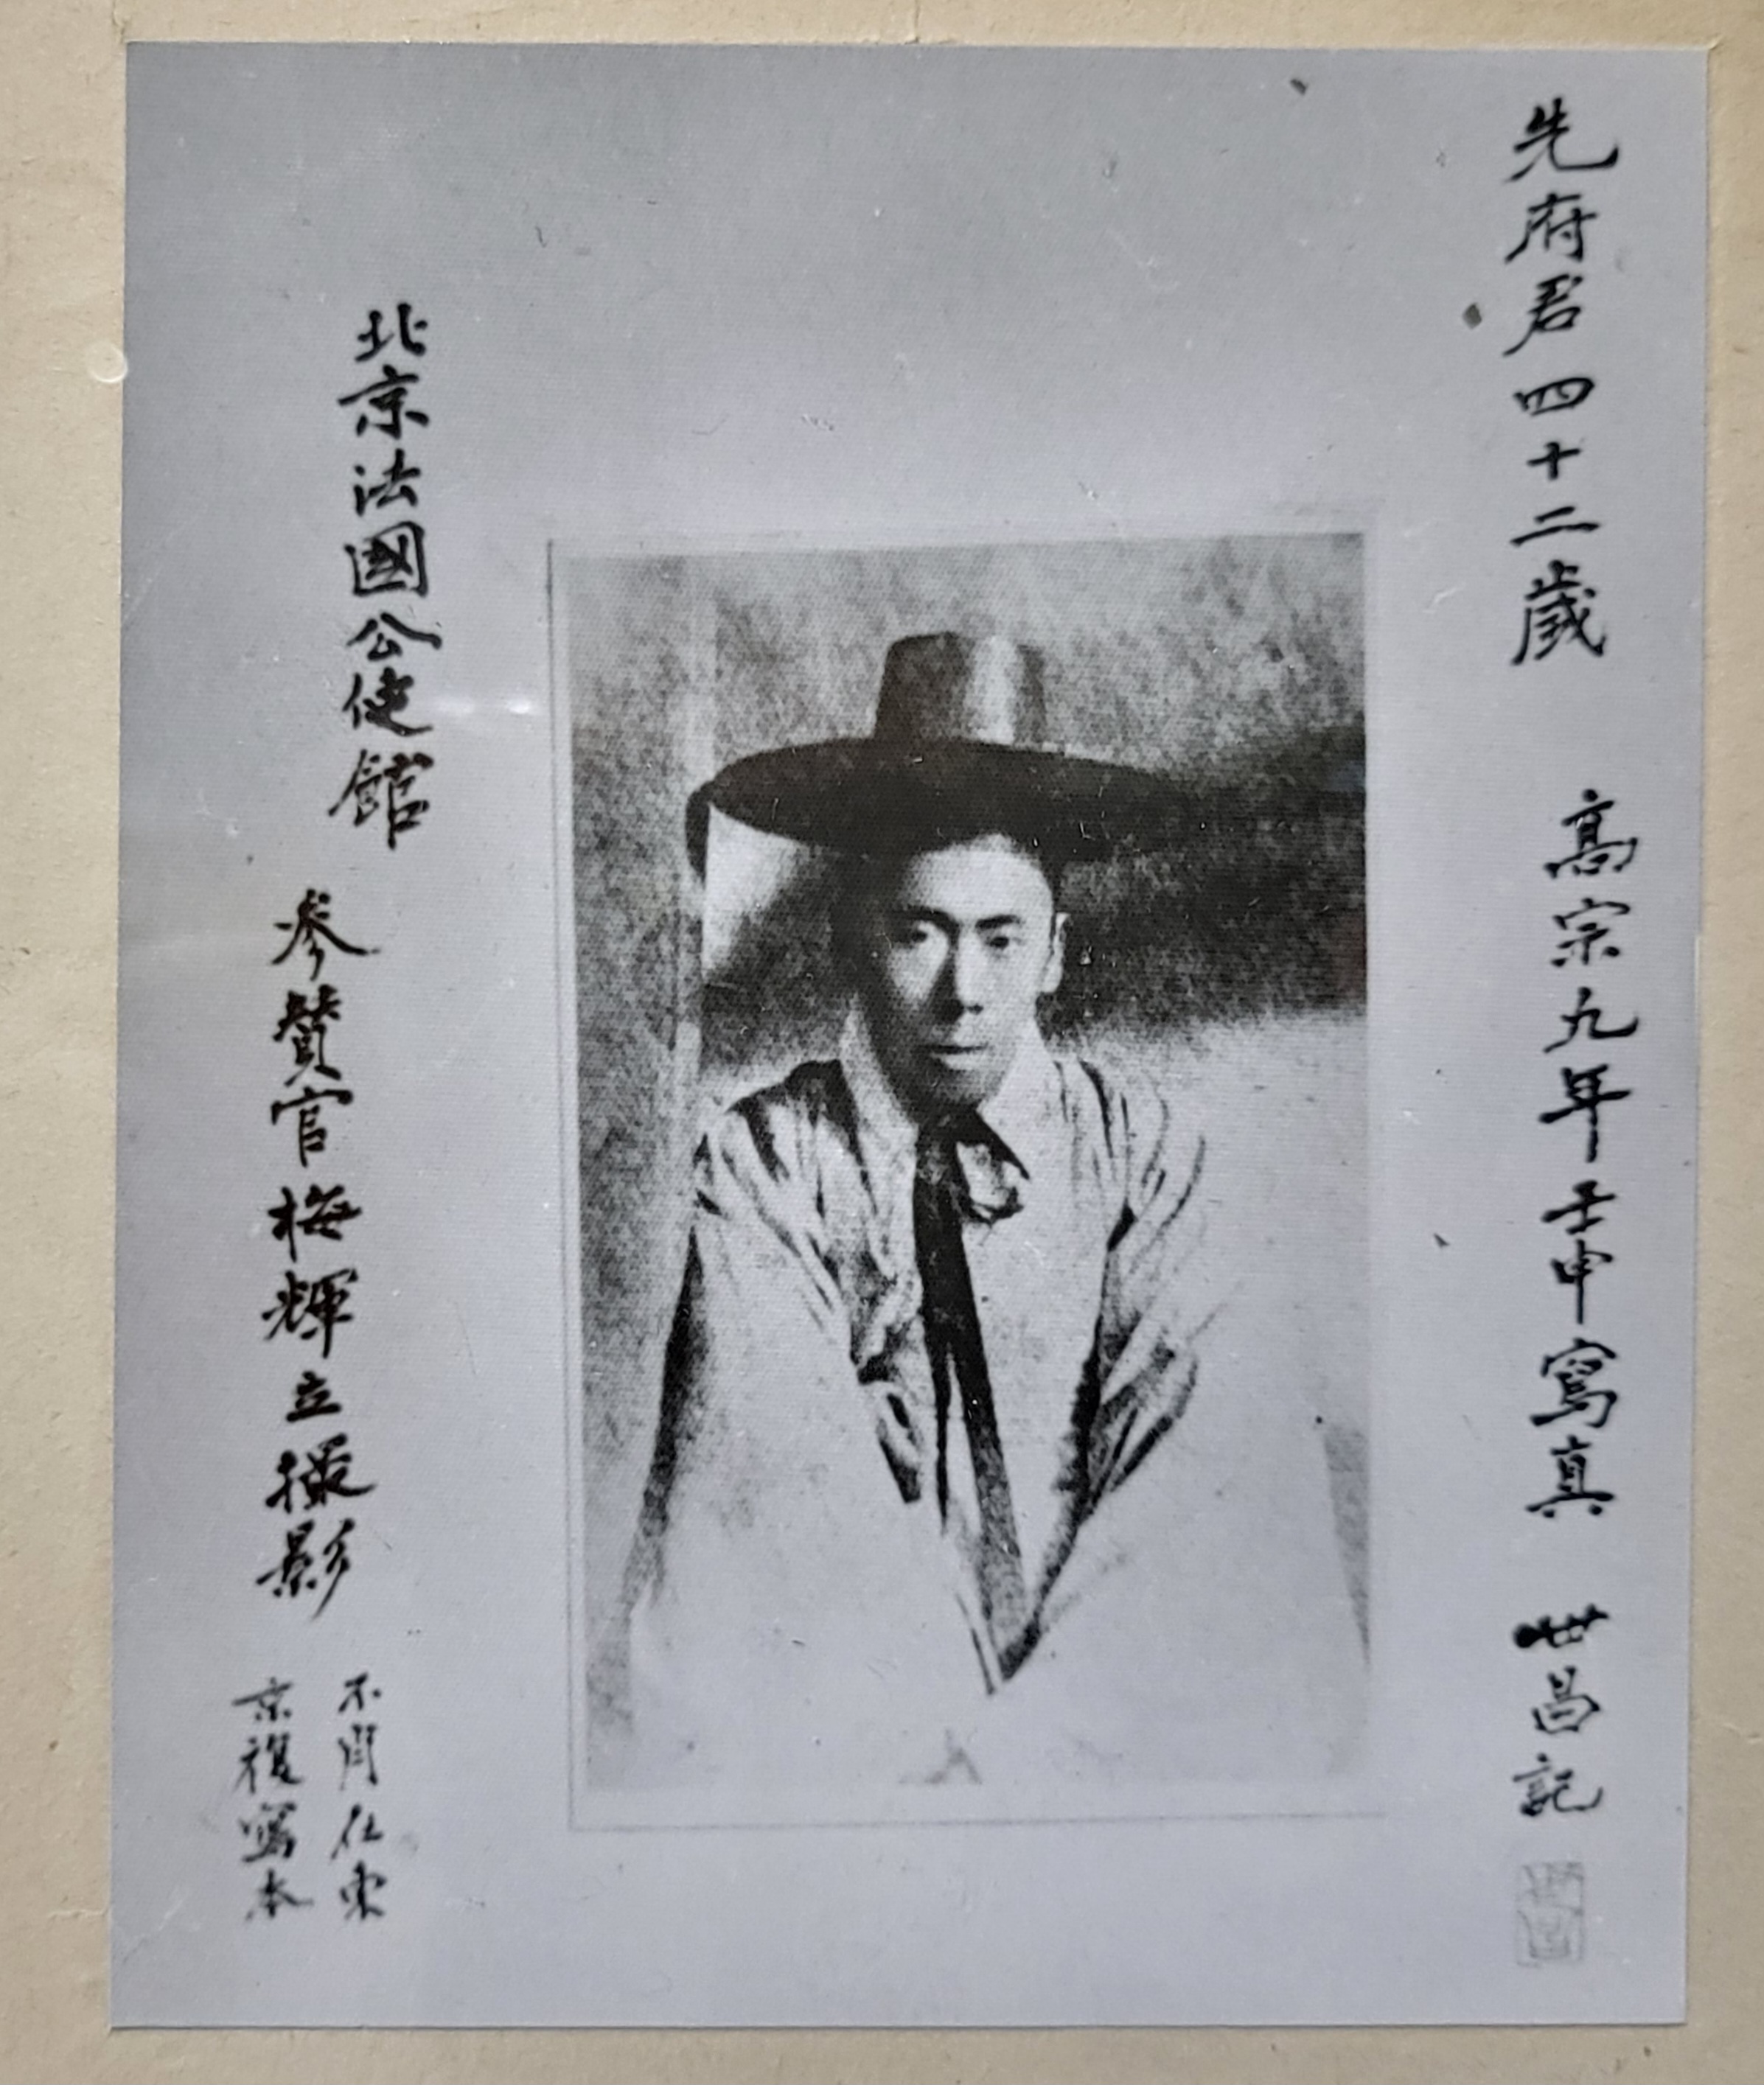 先府君四十二歲 高宗九年壬申寫真 世昌記
北京法國公使館
參贊官梅輝立撮影
不肖在東
京複寫本